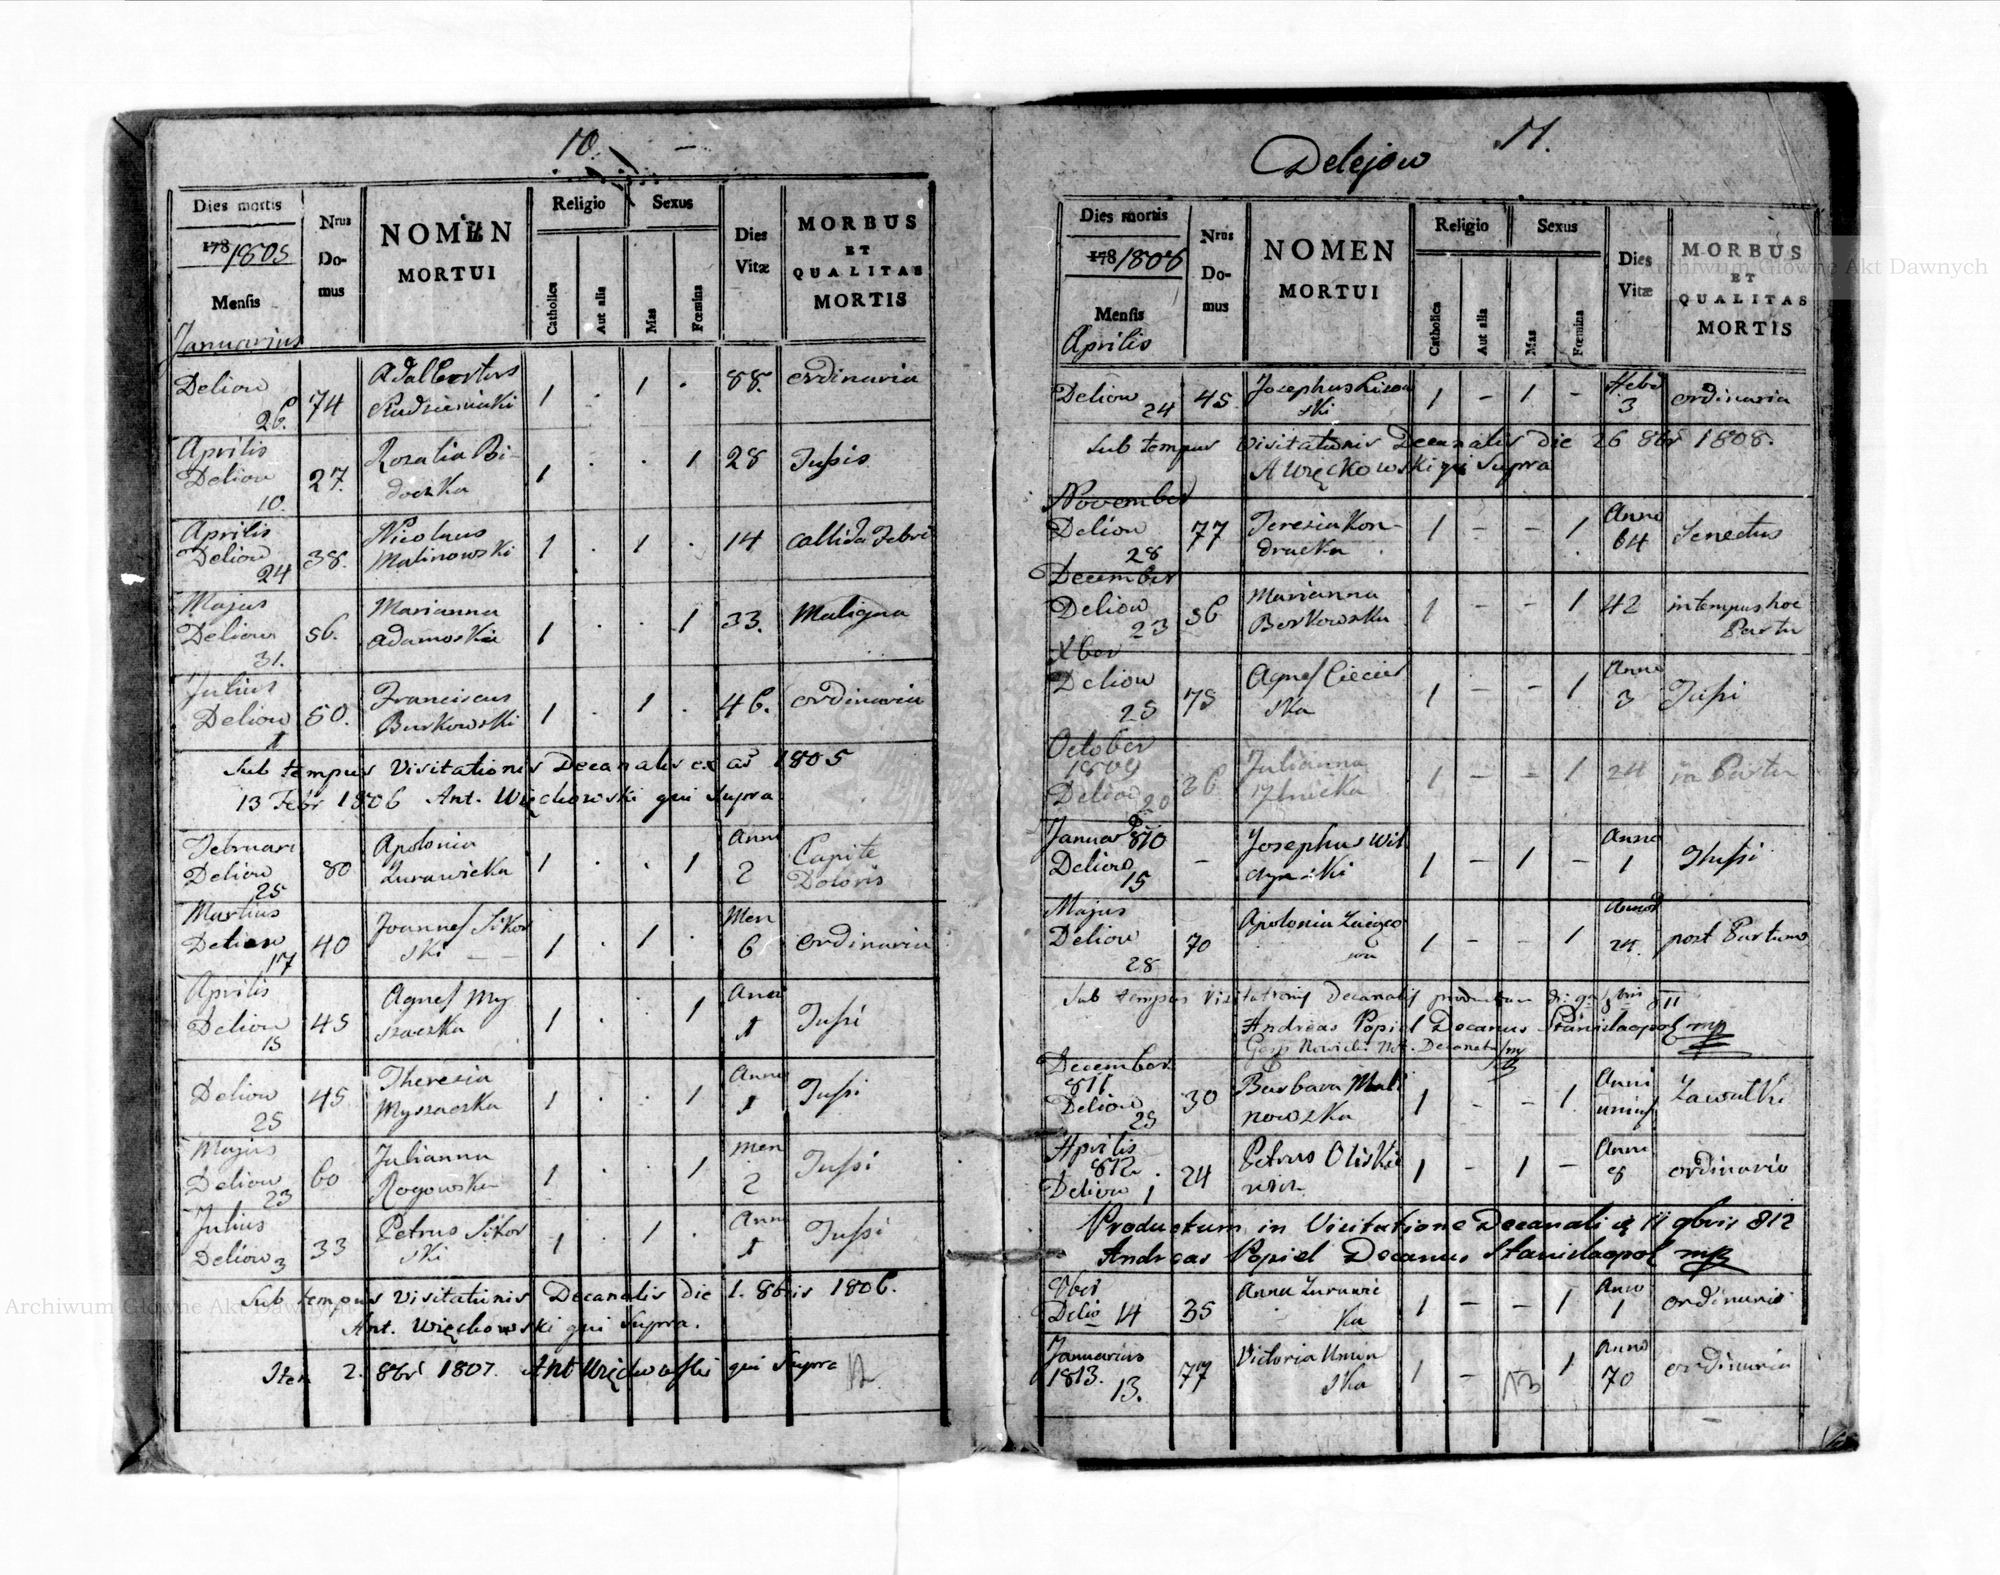 10.
Dies mortis
178 1805
Mensis
Januarius
Nrus Domus
NOMEN
MORTUI
Religio
Catholica
Aut alia
Sexus
Mas
Fœmina
Dies
Vitæ
MORBUS
ET
QUALITAS
MORTIS
Deliow 26. 74 Adalbertus 1 . 1 . 88. ordinaria
Aprilis
Deliow 10. 27. Rosalia Bi- 1 . . 1 28 Tussis
Aprilis
Deliow 24 38. Nicolaus Malinowski 1 . 1 . 14 callida Febri
Majus
Deliow 31. 56. Marianna Adamoska 1 . . 1 33. Maligna
Julius
Deliow 1 50. Franciscus Burkowski 1 . 1 . 46. ordinaria
Sub tempus Visitationis Decanalis ex aō 1805
13 Febr 1806 Ant. Więchowski qui supra
Februari
Deliow 25 80 Apolonia Zurawicka 1 . . 1 Anni 2 Capite Doloris
Martius
Deliow 17 40 Joannes Sikorski 1 . 1 . Men 6 ordinaria
Aprilis
Deliow 15 45 Agnes Myszaczka 1 . . 1 Anni 1 Tussi
Deliow 25 45 Theresia Myszaczka 1 . . 1 Anno 1 Tussi
Majus
Deliow 23 60 Julianna Rogowska 1 . . 1 Men 2 Tussi
Julius
Deliow 3 33 Petrus Sikorski 1 . 1 . Anni 1 Tussi
Sub tempus Visitationis Decanalis die 1. 8bris 1806.
Ant. Więchowski qui supra.
Item 2. 8br 1807. Ant Więchowski qui supra
12
Delejow 11.
Dies mortis
178 1806
Mensis
Aprilis
Nrus Domus
NOMEN
MORTUI
Religio
Catholica
Aut alia
Sexus
Mas
Fœmina
Dies
Vitæ
MORBUS
ET
QUALITAS
MORTIS
Deliow 24 45 Josephus 1 – 1 – Hebd 3 ordinaria
Sub tempus Visitationis Decanalis die 26 8br 1808.
A Więckowski qui supra
November
Deliow 28 77 Teresia Kondracka 1 – – 1 Anno 64 Senectus
December
Deliow 23 56 Marianna Borkowska 1 – – 1 42 in tempus hoc Partu
Xber
Deliow 25 75 Agnes 1 – – 1 Anno 3 Tussi
October
1809
Deliow 20 36 Julianna 1 – – 1 24 in Partu
Januar 810
Deliow 15 – Josephus 1 – 1 – Anno 1 Tussi
Majus
Deliow 28 70 Apolonia 1 – – 1 24. post Partum
Sub tempus Visitationis Decanalis productum 811
Andreas Popiel Decanus Stanislaopol mp
December
811
Deliow 25 30 Barbara Malinowszka 1 – – 1 Anni unius Zawałki
Aprilis
812
Deliow 1 24 Petrus 1 – 1 – Anni 8 ordinario
Productum in Visitatione Decanali 11 9bris 812
Andreas Popiel Decanus Stanislaopol mp
Delio 14 35 Anna Zurawicka 1 – – 1 Anno 1 ordinario
Januarius
1813. 13. 77 Victoria 1 – 1 Anno 70 ordinaria
13
Archiwum Główne Akt Dawnych
Archiwum Główne Akt Dawnych